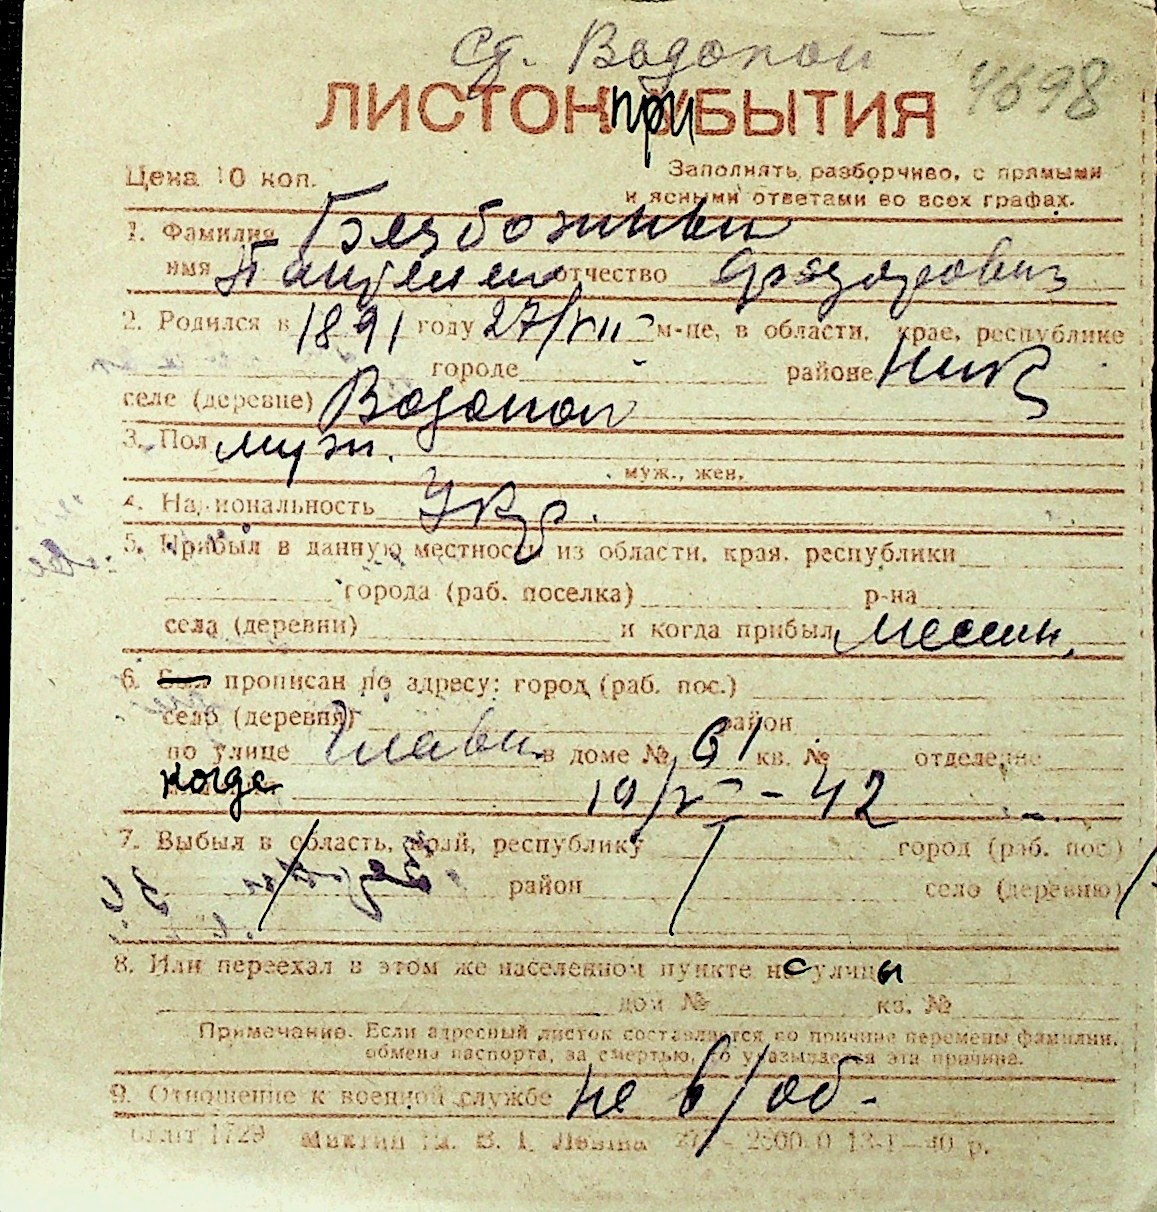 Ст. Водопой
4698
ЛИСТОК ПРИБЫТИЯ
Цена 10 коп.
Заполнять разборчиво, с прямыми
и ясными ответами во всех графах.
1. Фамилия Безбожный
имя Пантелей отчество Федорович
2. Родился в 1891 году 27/VII м-це, в области, крае, республике
городе районе Ник
селе (деревне) Водопой
3. Пол муж.
муж., жен.
4. Национальность Укр.
5. Прибыл в данную местность из области, края, республики
города (раб. поселка) р-на
села (деревни) и когда прибыл местн.
6. прописан по адресу: город (раб. пос.)
село (деревня) район
по улице Главн. в доме № 61 кв. № отделение
когда 19/V - 42
7. Выбыл в область, край, республику город (раб. пос.)
район село (деревню)
8. Или переехал в этом же населенном пункте с улицы
дом № кв. №
Примечание. Если адресный листок составляется по причине перемены фамилии,
обмена паспорта, за смертью, то указывается эта причина.
9. Отношение к военной службе не в/об-
1729 В. І. Леніна 2500.0 13-I-40 р.